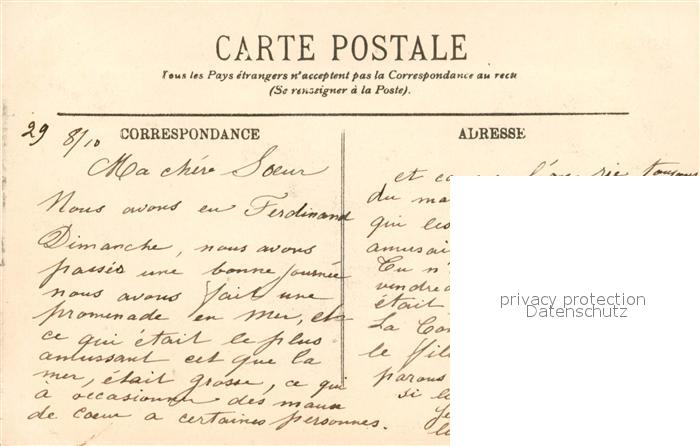 CARTE POSTALE
Tous les Pays étrangers n'acceptent pas la Correspondance au recto
(Se renseigner à la Poste).
29 8/10 CORRESPONDANCE
Ma chére Sœur
Nous avons eu Ferdinand
Dimanche, nous avons
passés une bonne journée
nous avons fait une
promenade en mer, et
ce qui était le plus
amussant cet que la
mer, était grosse, ce qui
à occasionner des maux
de cœur a certaines personnes.
ADRESSE
et toujours
du
qui les
amusai
Tu n'
vendred
était
La
le
parons
si
privacy protection
Datenschutz